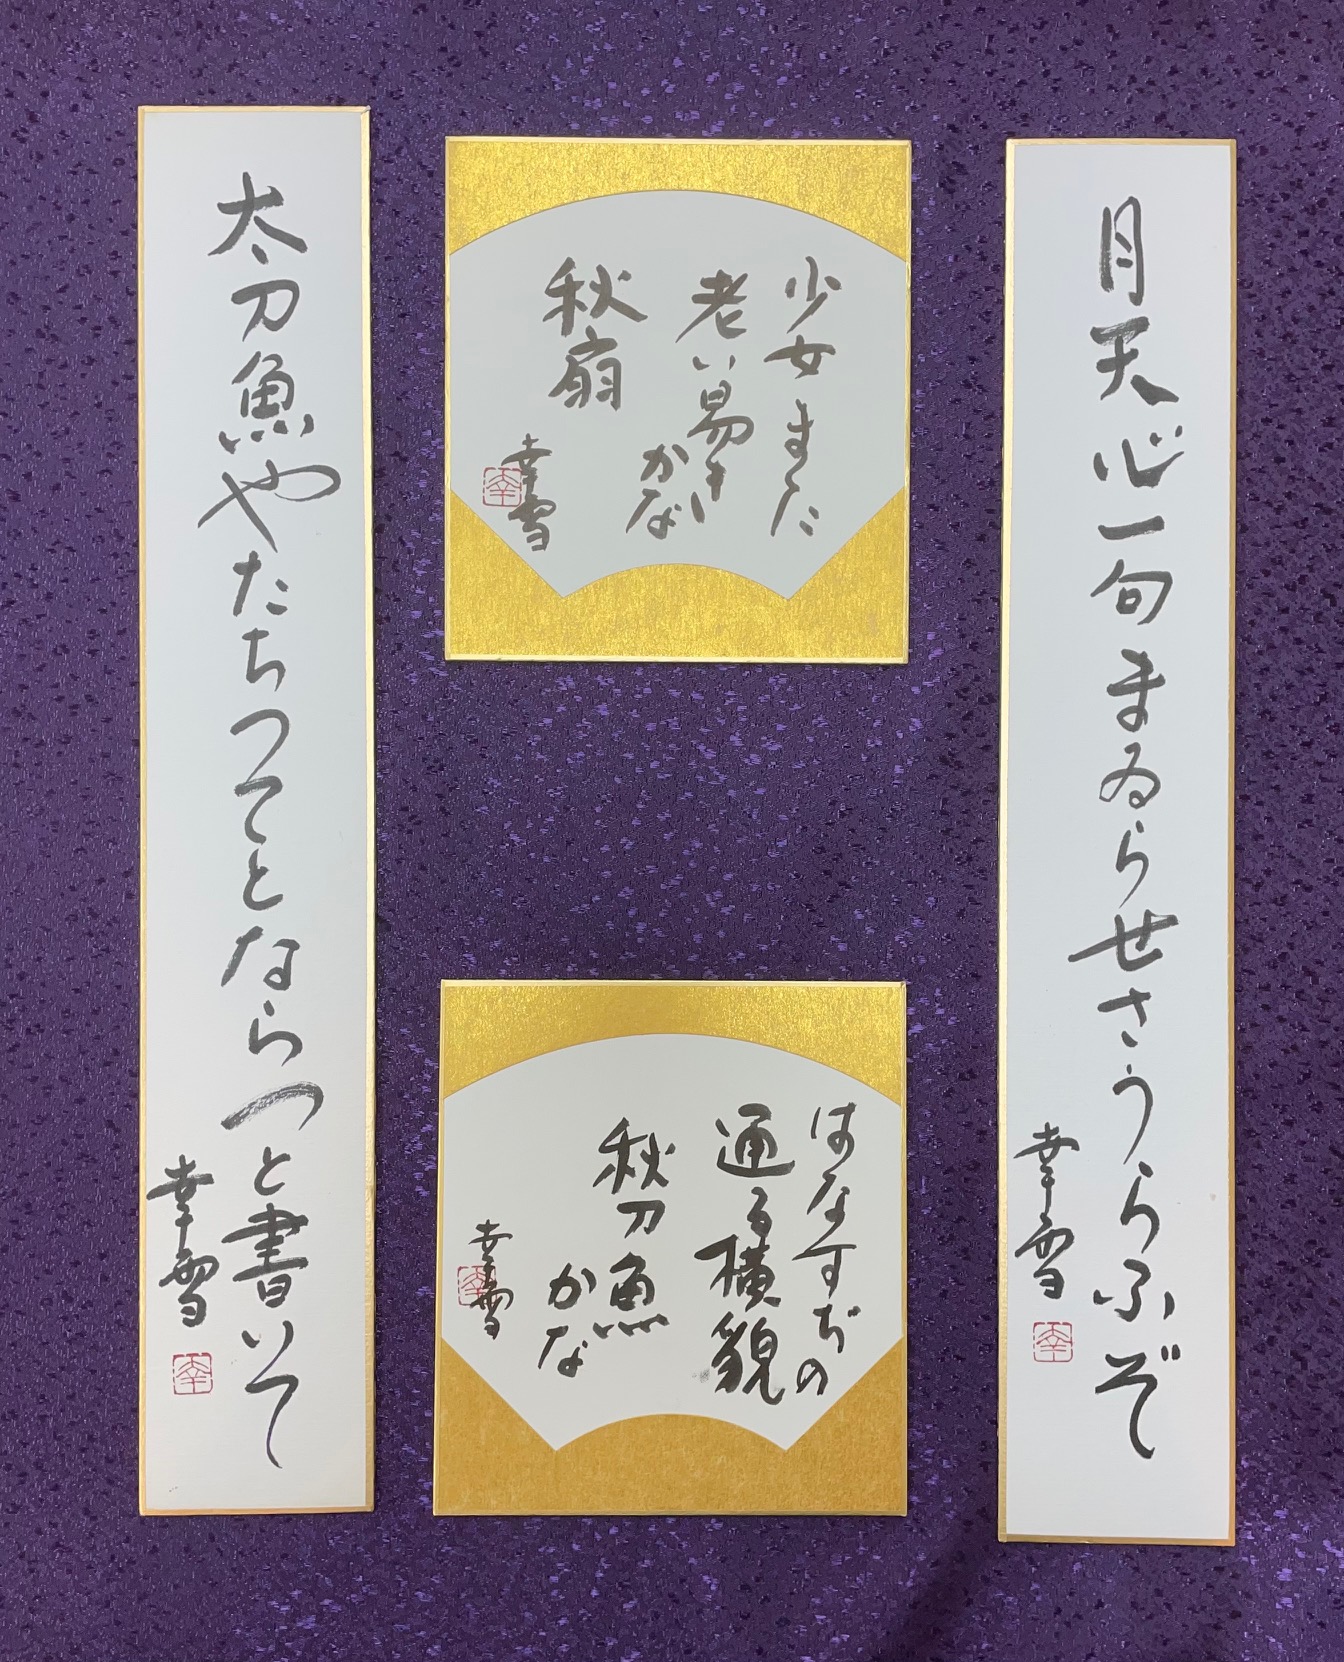 月天心一句まゐらせさうらふぞ
幸雪
幸
少女また
老い易き
かな
秋扇
幸雪
幸
はなすぢの
通る横貌
秋刀魚
かな
幸雪
幸
太刀魚やたちつてとならつと書いて
幸雪
幸